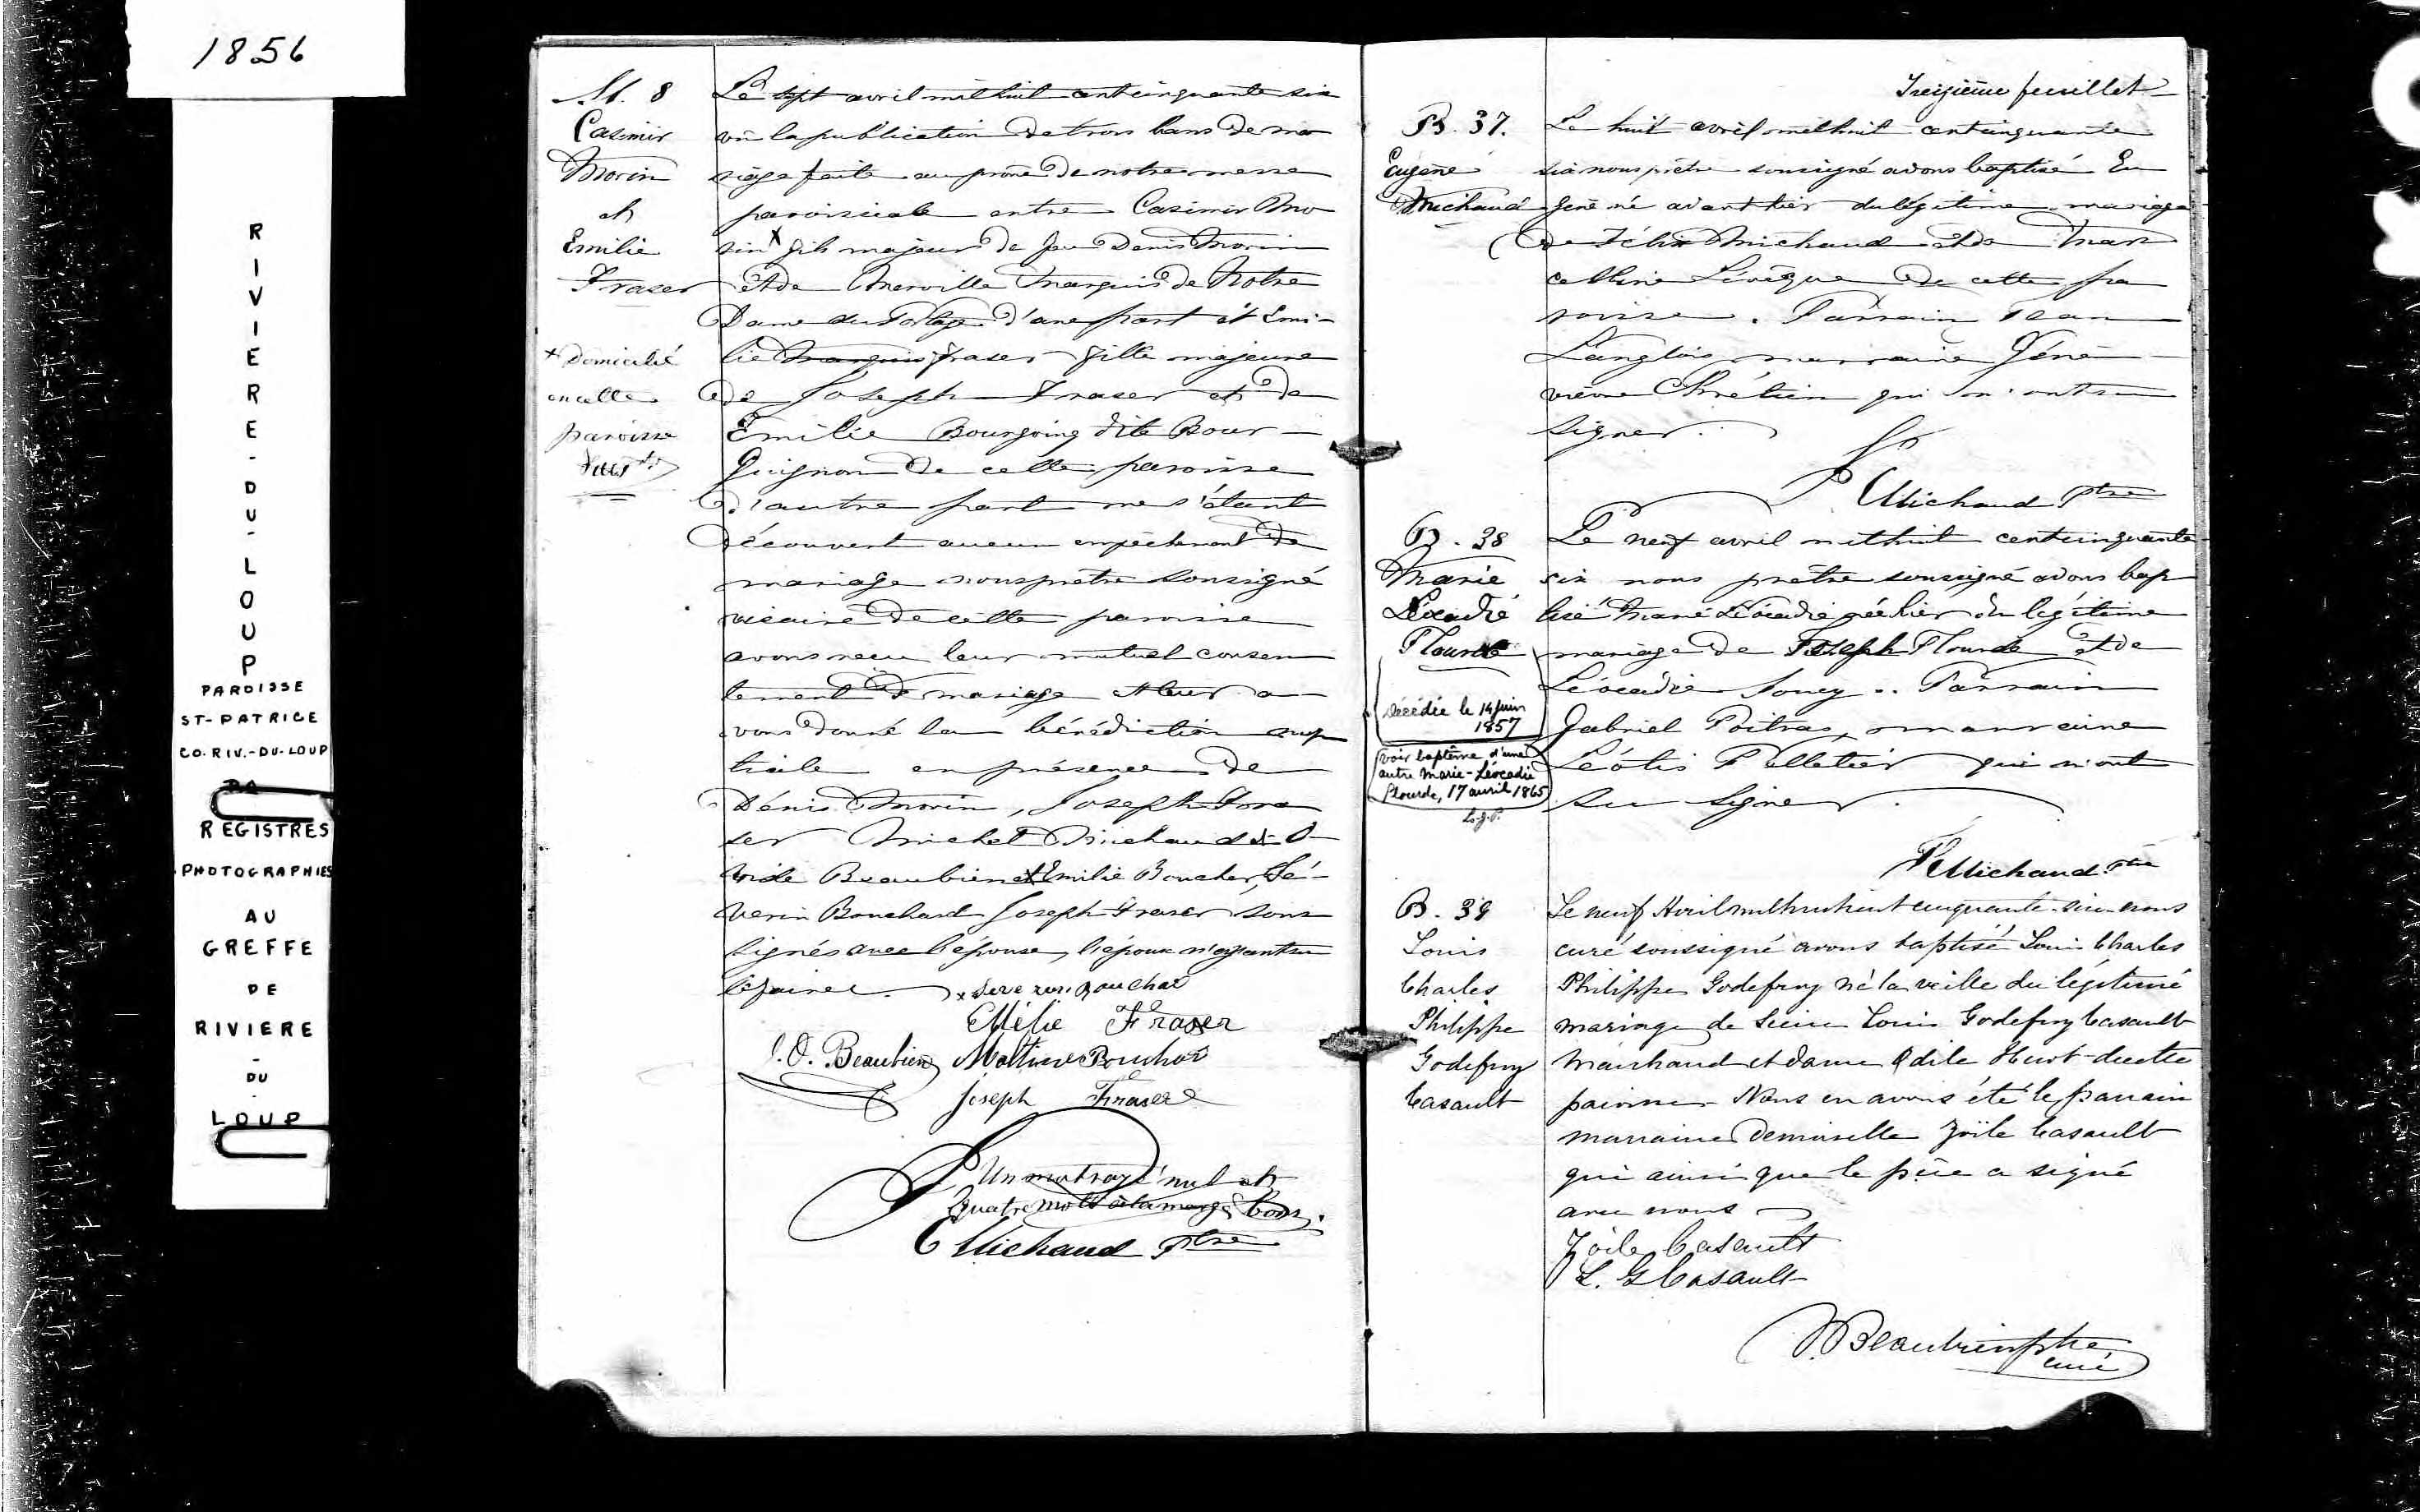 1856
RIVIERE-DU-LOUP
PAROISSE
ST-PATRICE
CO. RIV.-DU-LOUP
REGISTRES
PHOTOGRAPHIES
AU
GREFFE
DE
RIVIERE
-
DU
-
LOUP
M. 8
Casimir
Morin
et
Emilie
Fraser
x Domicilié
en cette
paroisse
Le sept avril mil huit cent cinquante six
vu la publication de trois bans de ma
riage faite au prône de notre messe
paroissiale entre Casimir Mo
rin x fils majeur de feu Denis Morin
et de Merville Marquis de Notre
Dame du Portage d'une part et Emi-
lie Marquis Fraser fille majeure
de Joseph Fraser et de
Emilie Bourgoing dite Bour-
guignon de cette paroisse
d'autre part ne s'étant
découvert aucun empêchement de
mariage nous prêtre soussigné
vicaire de cette paroisse
avons reçu leur mutuel consen
tement de mariage et leur a-
vons donné la bénédiction nup
tiale en présence de
Dénis Morin, Joseph Fra
ser Michel Michaud et O
vide Beaubien et Emilie Boucher, Sé-
verin Bouchard Joseph Fraser sous
signés avec l'épouse, l'époux n'ayant su
le faire.
x severin Bouchar
Emélie Fraser
J. O. Beaubien
Joseph Fraser
Un mot rayé nul et
quatre mots à la marge bons.
Michaud Ptre
Treizième feuillet
B. 37.
Eugène
Michaud
Le huit avril mil huit cent cinquante
six nous prêtre soussigné avons baptisé Eu
gène né avant hier du légitime mariage
de Félix Michaud et de Mar
celline Lévêque de cette pa
roisse. Parrain Jean
Langlois, marraine Géné-
viève Chrétien qui n'ont su
signer.
Michaud Ptre
B. 38
Marie
Léocadie
Plourde
Décédée le 14 juin
1857
Voir baptême d'une
autre Marie-Léocadie
Plourde, 17 avril 1865
L.-J. P.
Le neuf avril mil huit cent cinquante
six nous prêtre soussigné avons bap
tisé Marie Léocadie née hier du légitime
mariage de Joseph Plourde et de
Léocadie Soucy. Parrain
Gabriel Poitras, marraine
Léotis Pelletier qui n'ont
su signer.
Michaud Ptre
B. 39
Louis
Charles
Philippe
Godefroy
Casault
Le neuf Avril mil huit cent cinquante-six nous
curé soussigné avons baptisé Louis Charles
Philippe Godefroy né la veille du légitime
mariage de Sieur Louis Godefroy Casault
Marchand et dame Odile Huot de cette
paroisse. Nous en avons été le parrain
marraine Demoiselle Zoïle Casault
qui ainsi que le père a signé
avec nous
Zoïle Casault
L. G Casault
Beaubien ptre
curé